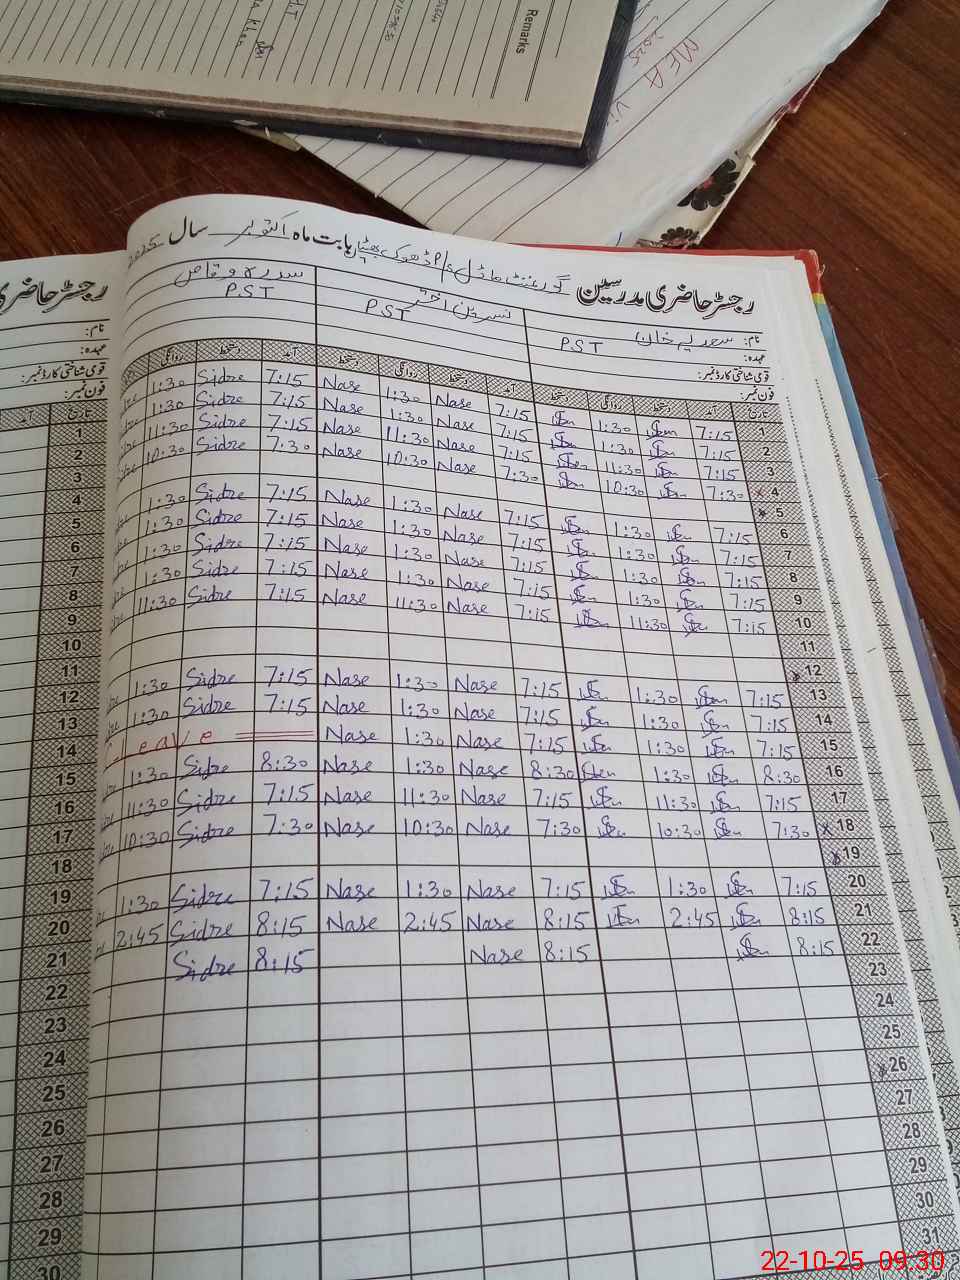 Remarks
MEA
2025
رجسٹر حاضری مدرسین گورنمنٹ ماڈل p/s ڈھوک بھٹیاں بابت ماہ اکتوبر سال 2025
نام: سعدیہ خان نسرین اختر سدرہ وقاص
عہدہ: P.S.T P.S.T P.S.T
قومی شناختی کارڈ نمبر:
فون نمبر:
تاریخ آمد دستخط روانگی دستخط آمد دستخط روانگی دستخط آمد دستخط روانگی
1 7:15 1:30 7:15 Nase 1:30 Nase 7:15 Sidre 1:30
2 7:15 1:30 7:15 Nase 1:30 Nase 7:15 Sidre 1:30
3 7:15 11:30 7:15 Nase 11:30 Nase 7:15 Sidre 11:30
4 7:30 10:30 7:30 Nase 10:30 Nase 7:30 Sidre 10:30
5
6 7:15 1:30 7:15 Nase 1:30 Nase 7:15 Sidre 1:30
7 7:15 1:30 7:15 Nase 1:30 Nase 7:15 Sidre 1:30
8 7:15 1:30 7:15 Nase 1:30 Nase 7:15 Sidre 1:30
9 7:15 1:30 7:15 Nase 1:30 Nase 7:15 Sidre 1:30
10 7:15 11:30 7:15 Nase 11:30 Nase 7:15 Sidre 11:30
11
12
13 7:15 1:30 7:15 Nase 1:30 Nase 7:15 Sidre 1:30
14 7:15 1:30 7:15 Nase 1:30 Nase 7:15 Sidre 1:30
15 7:15 1:30 7:15 Nase 1:30 Nase Leave
16 8:30 1:30 8:30 Nase 1:30 Nase 8:30 Sidre 1:30
17 7:15 11:30 7:15 Nase 11:30 Nase 7:15 Sidre 11:30
18 7:30 10:30 7:30 Nase 10:30 Nase 7:30 Sidre 10:30
19
20 7:15 1:30 7:15 Nase 1:30 Nase 7:15 Sidre 1:30
21 8:15 2:45 8:15 Nase 2:45 Nase 8:15 Sidre 2:45
22 8:15 8:15 Nase 8:15 Sidre
23
24
25
26
27
28
29
30
31
رجسٹر حاضری
نام:
عہدہ:
قومی شناختی کارڈ نمبر:
فون نمبر:
تاریخ آمد
1
2
3
4
5
6
7
8
9
10
11
12
13
14
15
16
17
18
19
20
21
22
23
24
25
26
27
28
29
30
22-10-25 09:30